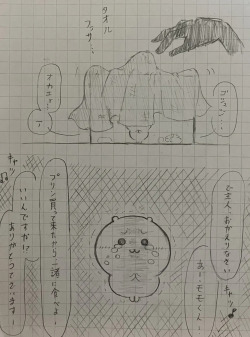 タオル
ファサ…
ゴシュ…
オカエ…
ご主人、おかえりなさい
キャッ
おー、モモくん
プリン買って来たから一緒に食べよー
いいんですか!?
ありがとうございますー
キャッ